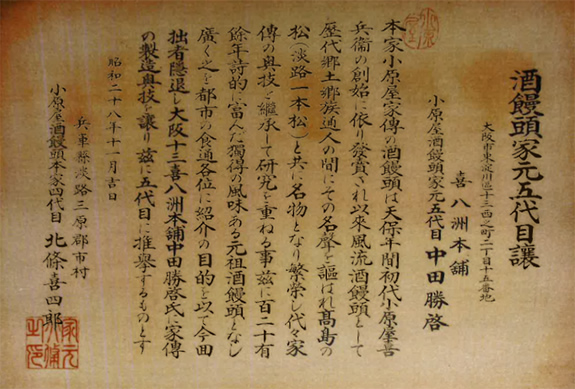 酒饅頭家元五代目讓
大阪市東淀川區十三西之町二丁目十五番地
喜八洲本舗
小原屋酒饅頭家元五代目 中田勝啓
本家小原屋家傳の酒饅頭は天保年間初代小原屋喜
兵衞の創始に依り發賣され以來風流酒饅頭として
歷代鄕土鄕族通人の間にその名聲を謳はれ髙島の
松(淡路一本松)と共に名物となり繁栄し代々家
傳の奥技を継承して研究を重ねる事茲に百二十有
餘年詩的に富んだ獨得の風味ある元祖酒饅頭となし
廣く之を都市の食通各位に紹介の目的を以て今囬
拙者隠退し大阪十三喜八洲本舗中田勝啓氏へ家傳
の製造奥技を讓り茲に五代目に推擧するものとす
昭和二十八年十一月吉日
兵庫縣淡路三原郡市村
小原屋酒饅頭本家四代目 北條喜四郎
家元